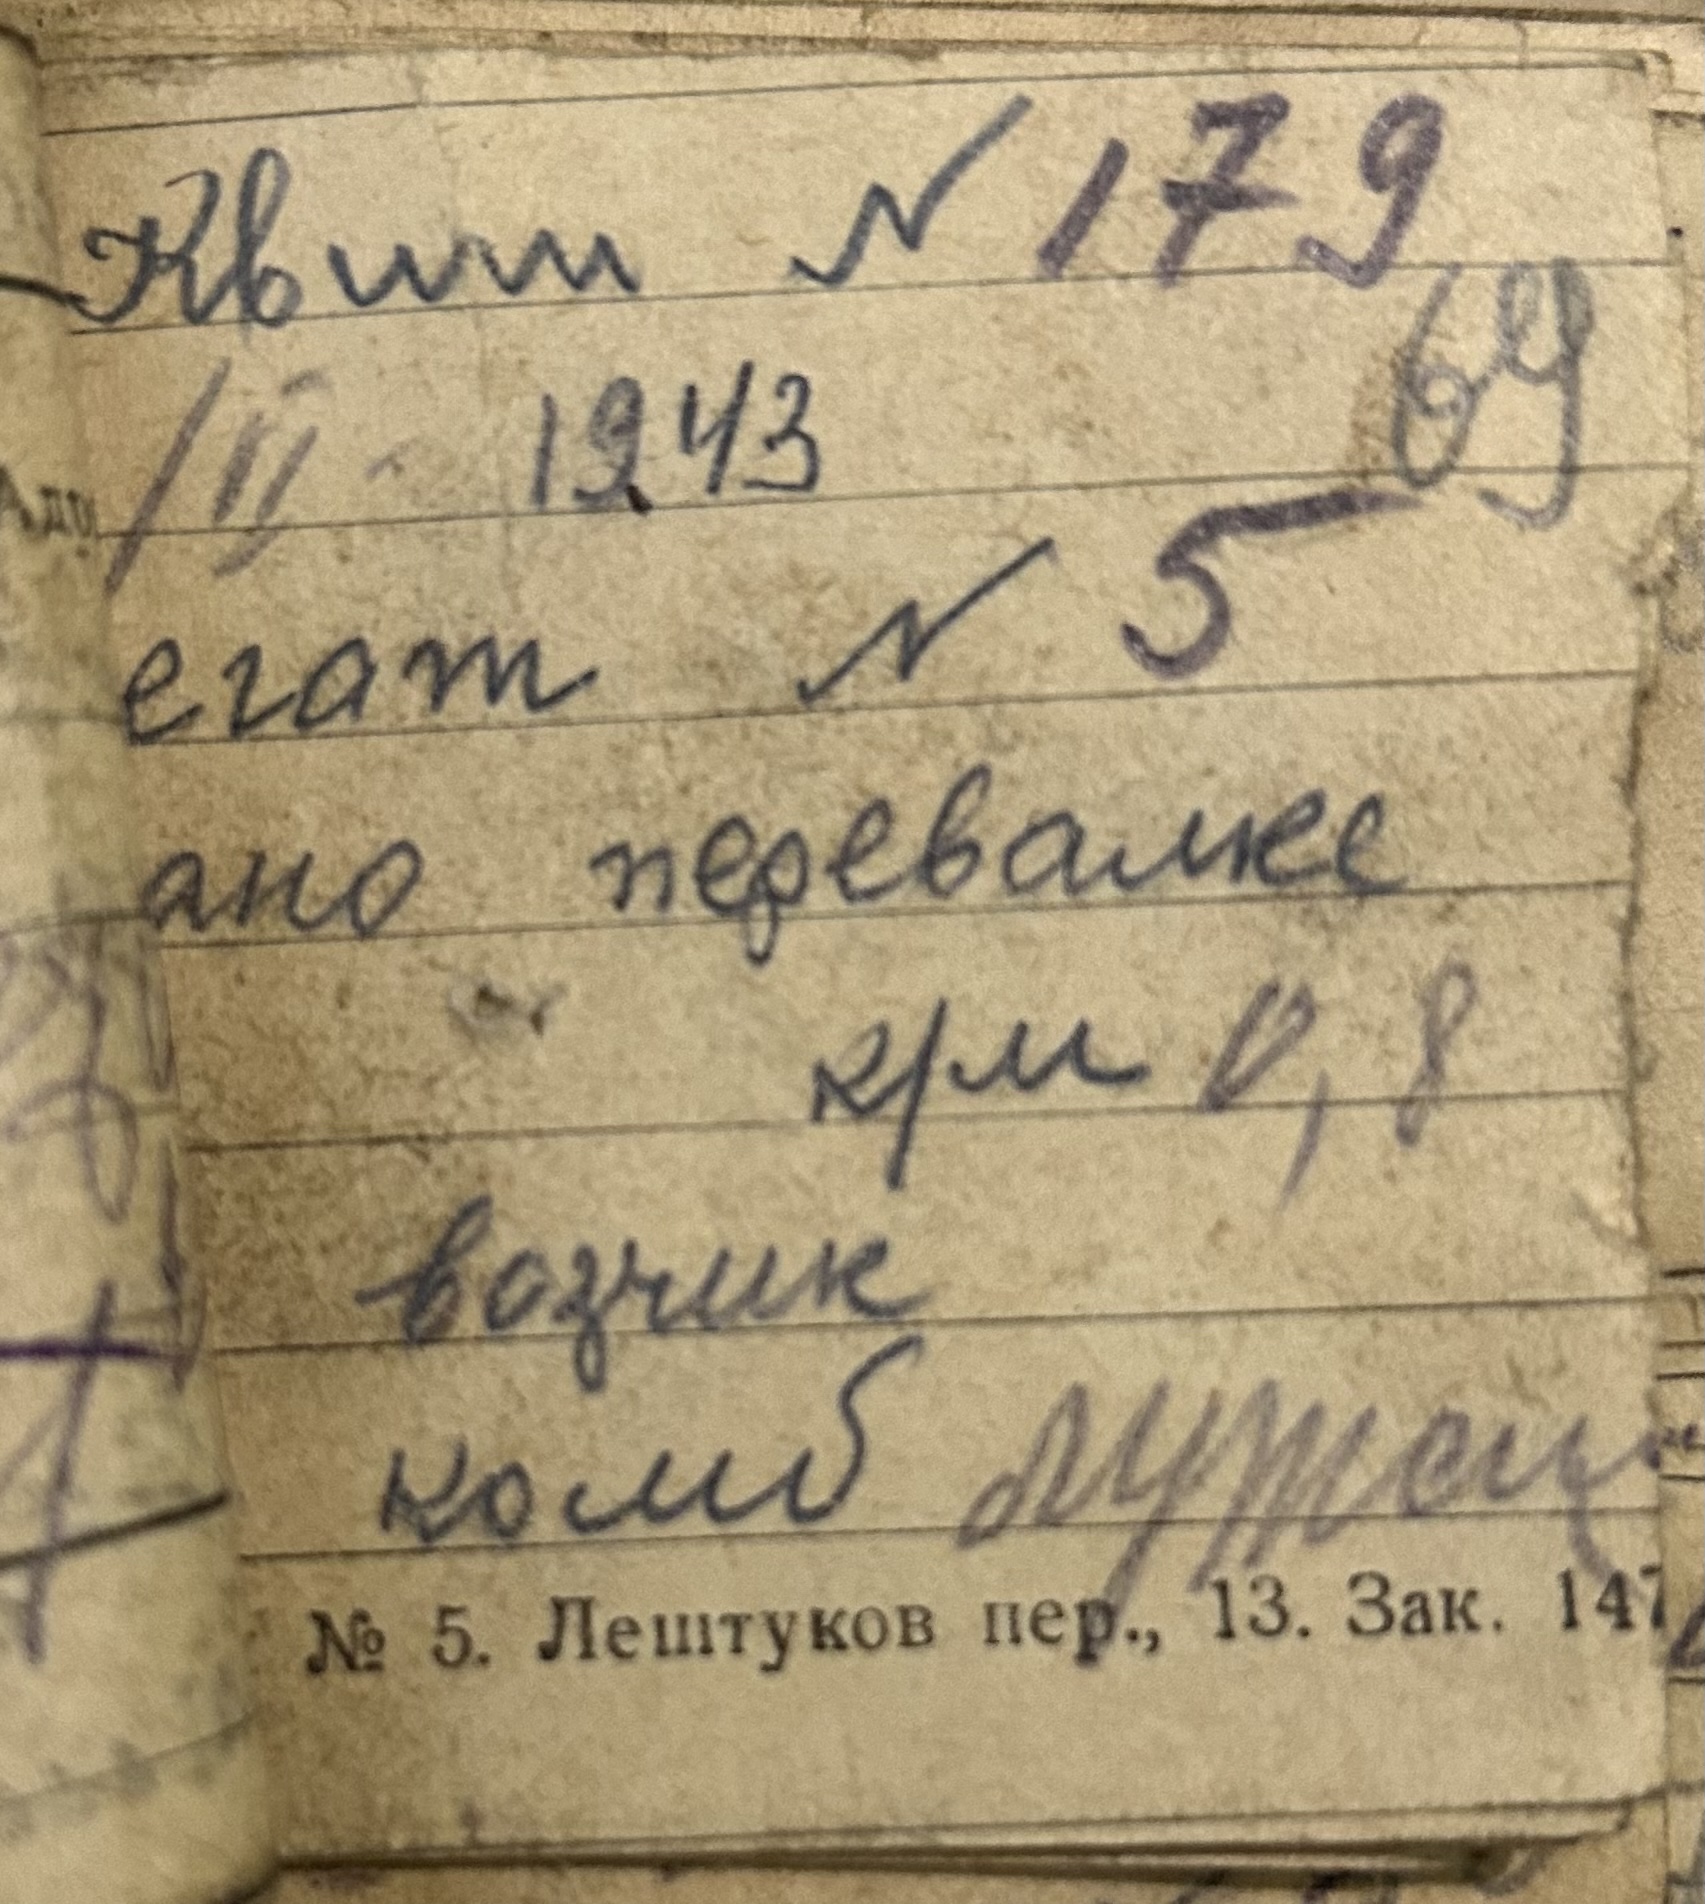 Квит № 179
69
/VI - 1943
егат № 5
ано перевалке
к/м 0,8
возчик
комб
№ 5. Лештуков пер., 13. Зак. 147